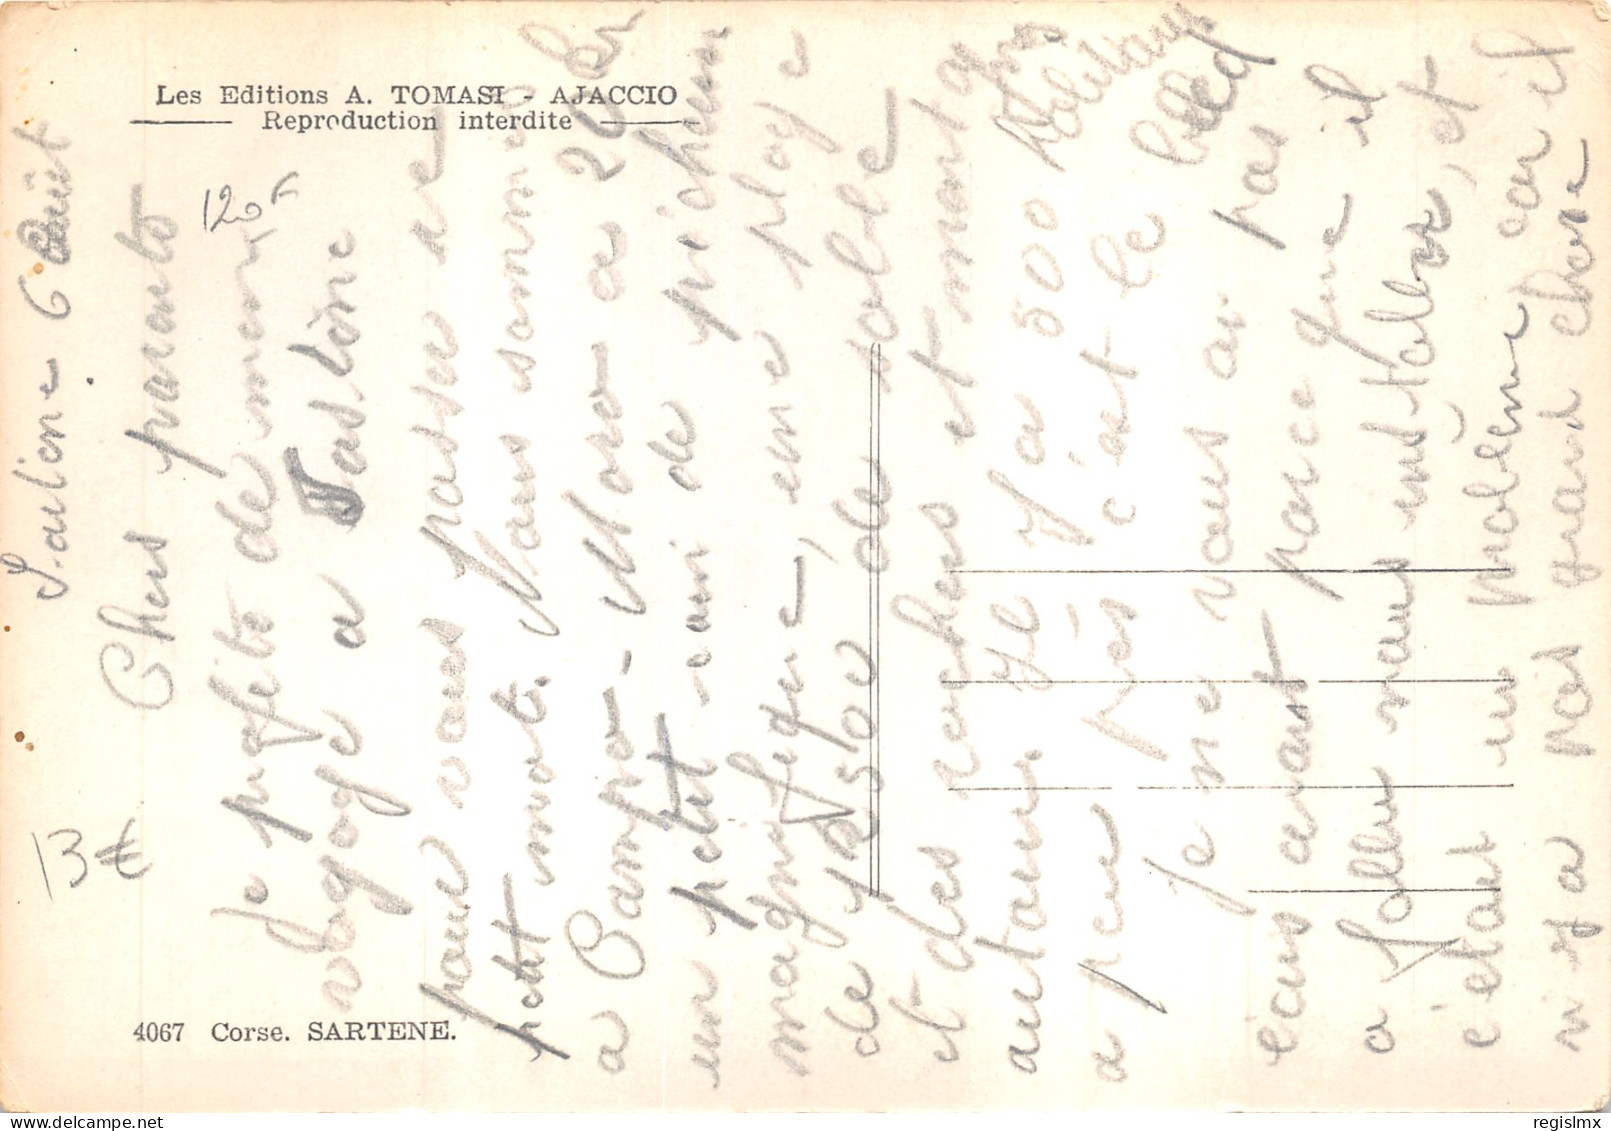 Les Editions A. TOMASI - AJACCIO
Reproduction interdite
120F
13 €
4067 Corse. SARTENE.
Sartene 6 Août
Chers parents
Je profite de mener
voyage a Sartène
pour vous passer un
petit mot. Nous sommes
a Campo-Moro a 20 km
un petit coin de pêcheur
magnifique, une plage
de de sable
et des rochers et montagnes
autour. Il y a 500 habitants
a peu près c'est le bled
Je ne vous ai pas
ecris avant parce que il
a fallu nous installer, et
c'était un problème car il
n'y a pas grand chose
regislmx
delcampe.net